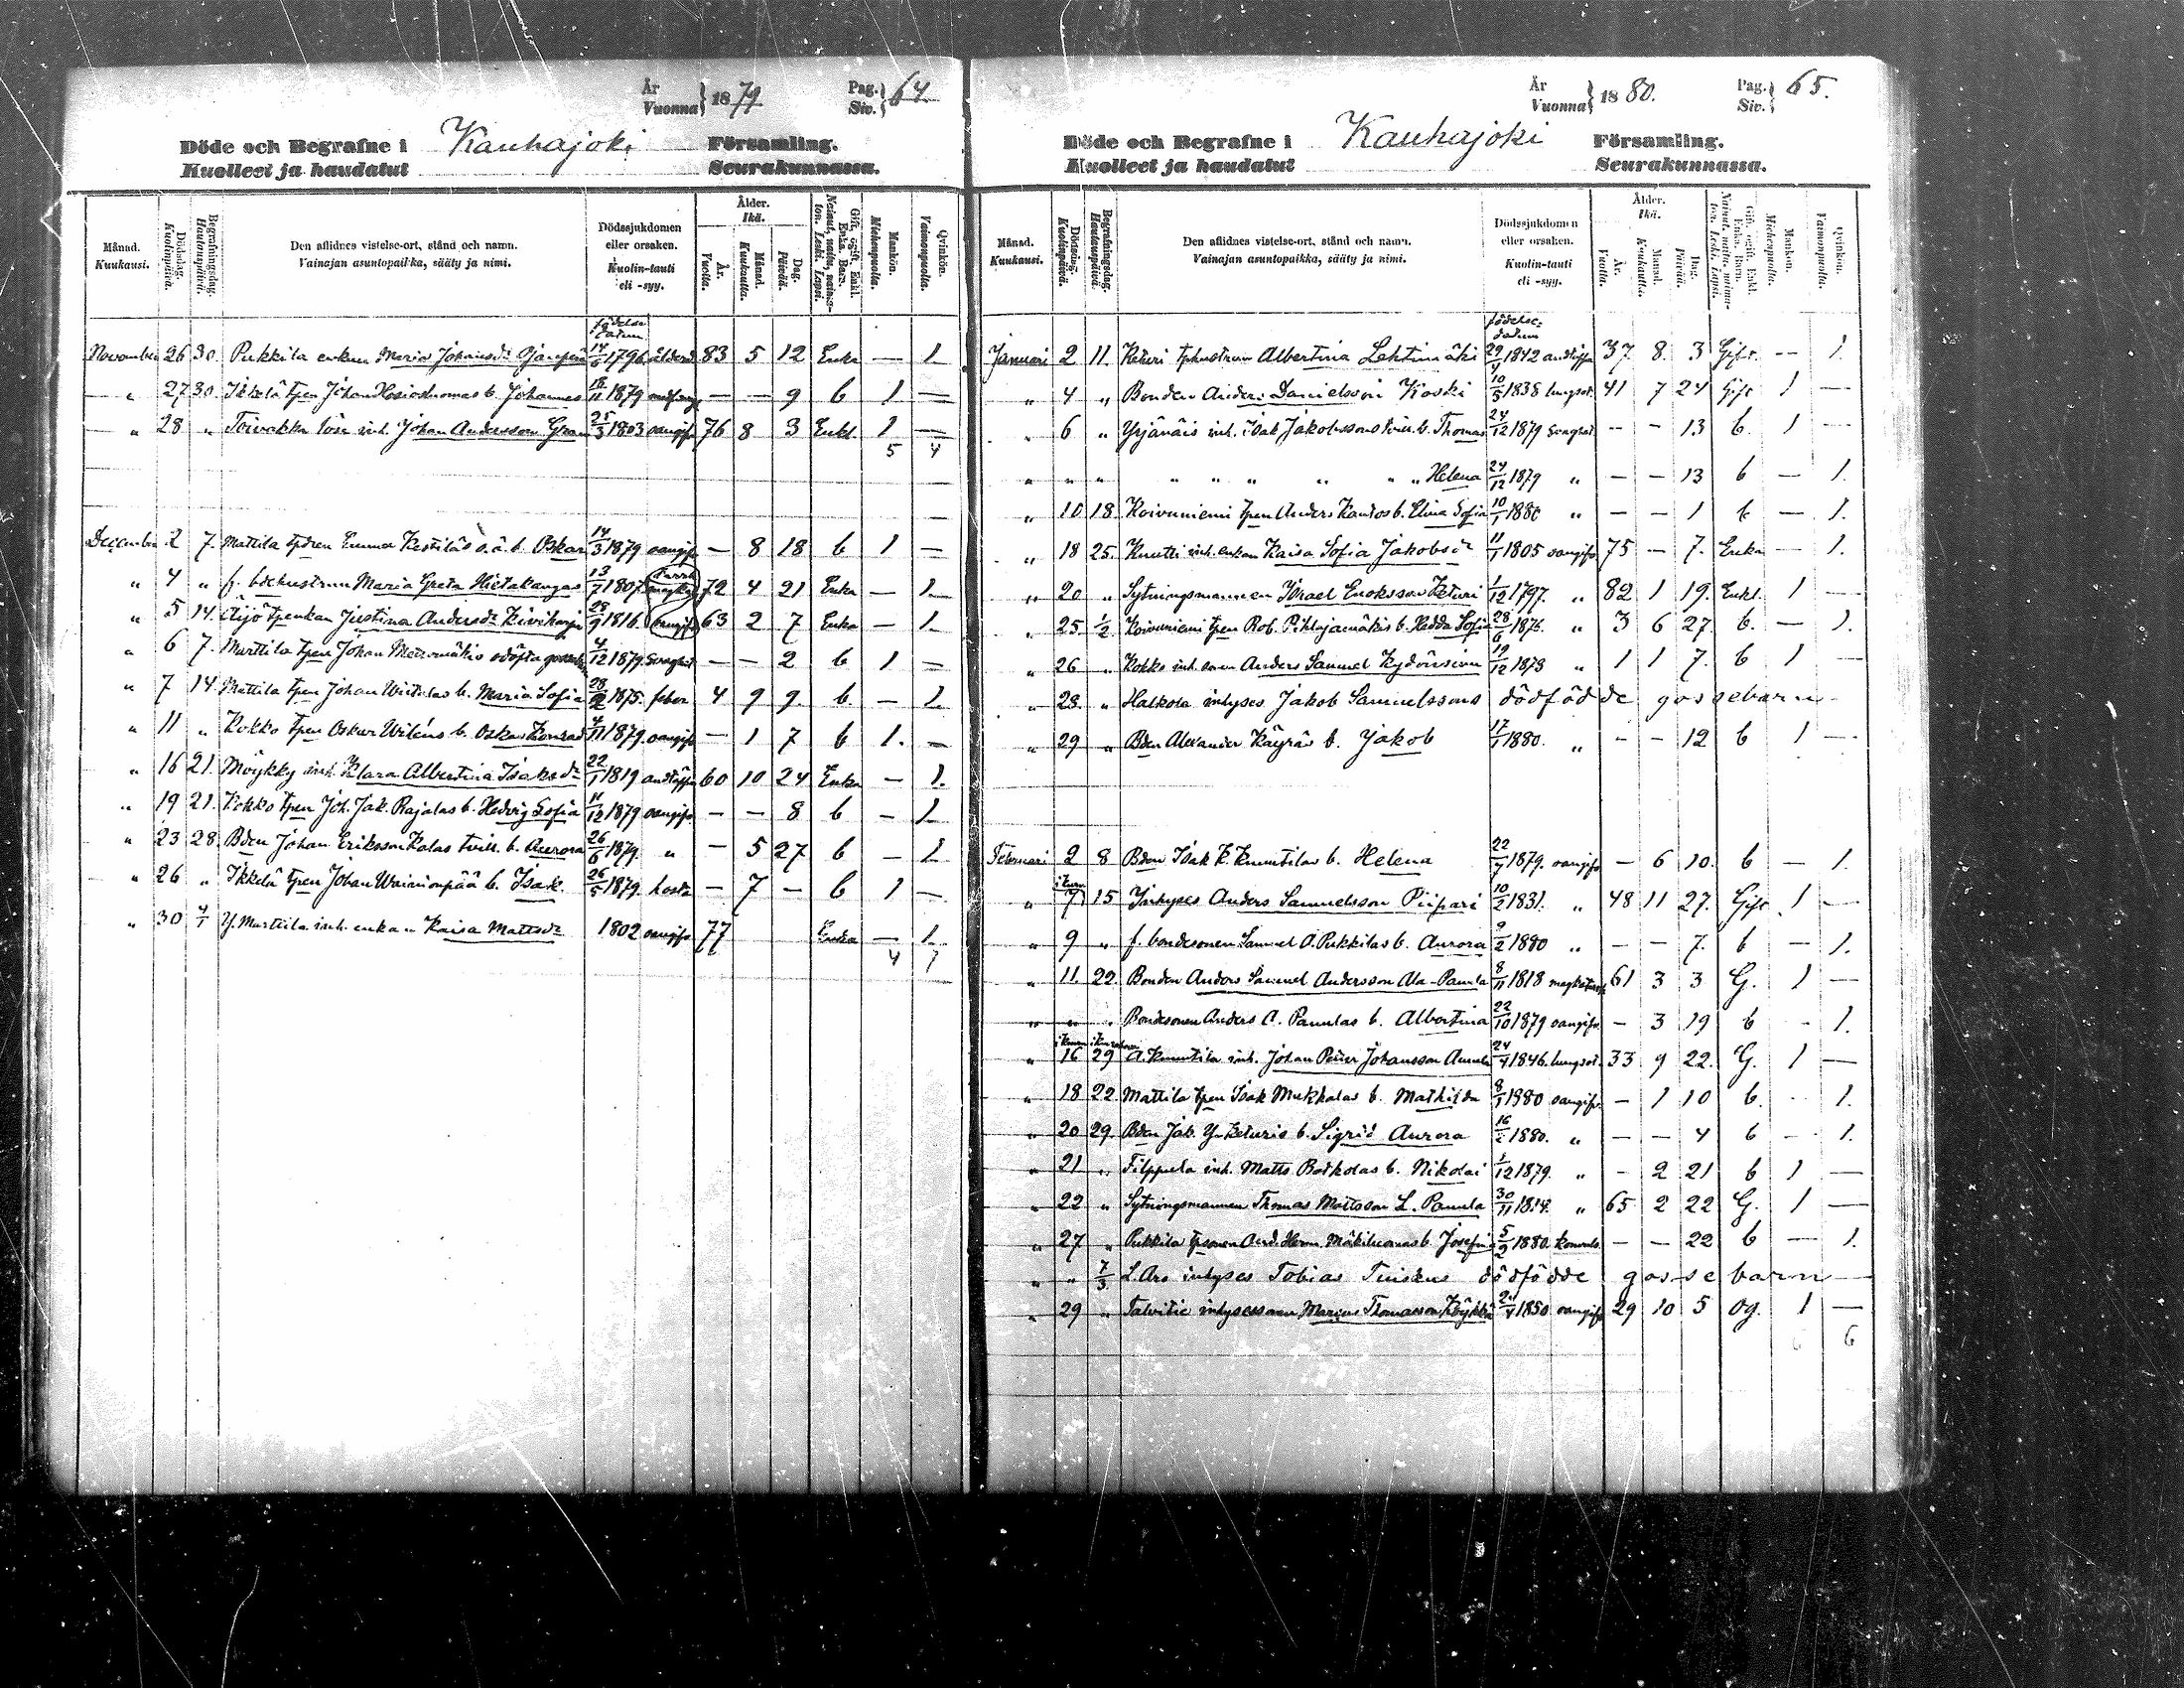 År
Vuonna } 1879.
Pag.
Siv. } 64.
Döde och Begrafne i Kauhajoki Församling.
Kuolleet ja haudatut Seurakunnassa.
Månad. Kuukausi.
Dödsdag. Kuolinpäivä.
Begrafningsdag. Hautauspäivä.
Den aflidnes vistelse-ort, stånd och namn.
Vainajan asuntopaikka, sääty ja nimi.
Dödssjukdomen eller orsaken.
Kuolin-tauti eli -syy.
Ålder. Ikä.
År. Vuotta.
Månad. Kuukautta.
Dag. Päivää.
Gift, ogift, Enkl. Enka, Barn.
Nainut, naitu, naimaton, Leski, Lapsi.
Mankön. Miehenpuolia.
Qvinkön. Vaimonpuolia.
födelse datum
November 26 30. Pukkila enkan Maria Johansdr 14/6 1796 83 5 12 Enka — 1.
" 27 30. Ikkelä tpen Johan b. Johannes 18/11 1879 — — 9 b 1 —
" 28 " Toivakka lösa inh. Johan Andersson 25/3 1803 oangifv 76 8 3 Enkl. 1 —
5 4
December 2 7. Mattila tpdren Emma Kestiläs o.ä. b. Oskar 14/3 1879 oangifv — 8 18 b 1 —
" 4 " f. bdehustrun Maria Greta Hietakangas 13/7 1807 72 4 21 Enka — 1.
" 5 14. Äijö tpenkan Justina Andersdr Kiviharju 28/9 1816. oangifv 63 2 7 Enka — 1.
" 6 7. Marttila tpen Johan odöpta 4/12 1879. — — 2 b 1 —
" 7 14. Mattila tpen Johan b. Maria Sofia 28/2 1875. feber 4 9 9. b. — 1.
" 11 " Kokko tpen Oskar Wiléns b. Oskar Konrad 4/11 1879. oangifv — 1 7 b 1. —
" 16 21. Möykky inh. Klara Albertina Isaksdr 22/1 1819 andtäppa 60 10 24 Enka — 1.
" 19 21. Kokko tpen Joh. Jak. Rajalas b. Hedvig Sofia 11/12 1879 oangifv. — — 8 b — 1.
" 23 28. Bden Johan Eriksson Kalas tvill. b. Aurora 26/6 1879. " — 5 27 b — 1.
" 26 " Ikkelä tpen Johan Wainionpää b. Isak. 26/5 1879. hosta — 7 — b 1 —
" 30 4/1 Y. Marttila inh. enkan Kaisa Mattsdr 1802 oangifv 77 Enka — 1.
4 7
År
Vuonna } 1880.
Pag.
Siv. } 65.
Döde och Begrafne i Kauhajoki Församling.
Kuolleet ja haudatut Seurakunnassa.
Månad. Kuukausi.
Dödsdag. Kuolinpäivä.
Begrafningsdag. Hautauspäivä.
Den aflidnes vistelse-ort, stånd och namn.
Vainajan asuntopaikka, sääty ja nimi.
Dödssjukdomen eller orsaken.
Kuolin-tauti eli -syy.
Ålder. Ikä.
År. Vuotta.
Månad. Kuukautta.
Dag. Päivää.
Gift, ogift, Enkl. Enka, Barn.
Nainut, naitu, naimaton, Leski, Lapsi.
Mankön. Miehenpuolia.
Qvinkön. Vaimonpuolia.
födelse-datum
Januari 2 11. Keturi tphustrun Albertina Lehtimäki 29/4 1842 andtäppa 37 8. 3 Gift. — 1.
" 4 " Bonden Anders Danielsson Koski 10/5 1838 lungsot. 41 7 24 Gift 1 —
" 6 " Yrjänäis inh. Isak Jakobssons tvill. b. Thomas 24/12 1879 — — 13 b. 1 —
" " " " " " " " " Helena 24/12 1879 " — — 13 b — 1.
" 10 18. Koivuniemi tpen Anders b. Elina Sofia 10/1 1880 " — — 1 b — 1.
" 18 25. Knutti inh. enkan Kaisa Sofia Jakobsdr 11/1 1805 oangifv 75 — 7. Enka — 1.
" 20 " Sytningsmannen Israel Enoksson Keturi 1/12 1797. " 82 1 19. Enkl. 1 —
" 25. 1/2 Koivuniemi tpen Rob. Pihlajamäkis b. Hedda Sofia 28/6 1876. " 3 6 27. b. — 1.
" 26 " Kokko inh. Anders Samuel 19/12 1878 " 1 1 7. b 1 —
" 28. " Halkola inhyses Jakob Samuelssons dödfödde gossebarn
" 29 " Bden Alexander Käyräs b. Jakob 17/1 1880. " — — 12 b 1 —
Februari 2 8 Bden Isak K. Knuutilas b. Helena 22/7 1879. oangifv — 6 10. b — 1.
" 7 15 Inhyses Anders Samuelsson Piipari 10/2 1831. " 48 11 27. Gift. 1 —
" 9 " f. bondesonen Samuel A. Pukkilas b. Aurora 2/2 1880 " — — 7. b — 1.
" 11. 22. Bonden Anders Samuel Andersson Ala-Panula 8/11 1818 61 3 3 G. 1 —
" " " Bondesonen Anders A. Panulas b. Albertina 22/10 1879 oangifv. — 3 19 b - 1.
" 16 29 A. Knuutila inh. Johan Petter Johansson 24/4 1846. lungsot. 33 9 22. G. 1 —
" 18 22 Mattila tpen Isak Mukkalas b. Mathilda 8/1 1880 oangifv — 1 10 b. - 1.
" 20 29. Bden Jak. Y. Keturis b. Sigrid Aurora 16/2 1880. " — — 4 b — 1.
" 21 " Filppula inh. Matts b. Nikolai 1/12 1879. " — 2 21 b 1 —
" 22 " Sytningsmannen Thomas Mattsson L. Panula 30/11 1814. " 65 2 22 G. 1 —
" 27 " Pukkila tpsonen And. Herm. b. Josefina 5/2 1880. — — 22 b — 1.
" " 7/3. L. Aro inhyses Tobias dödfödde gossebarn
" 29 " Talvitie inhysessonen Marius Thomasson 24/4 1850 oangifv 29 10 5 og. 1 —
6 6